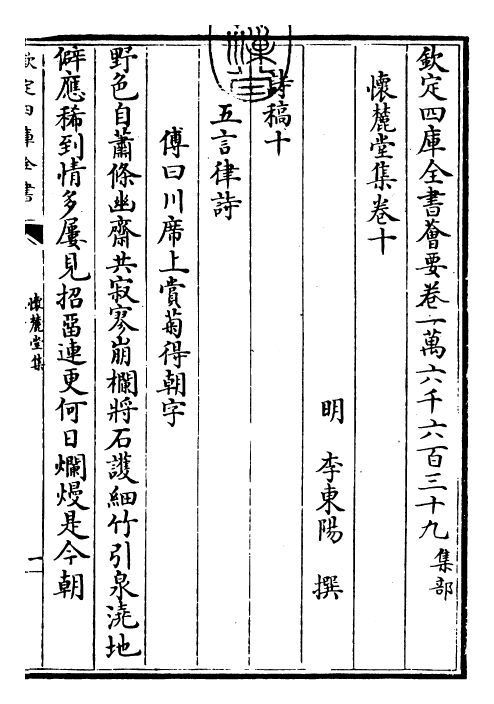 欽定四庫全書薈要卷一萬六千六百三十九 集部
懷麓堂集卷十
明 李東陽 撰
詩稿十
五言律詩
傅曰川席上賞菊得朝字
野色自蕭條幽齋共寂寥崩欄將石護細竹引泉澆地
僻應稀到情多屢見招畱連更何日爛熳是今朝
欽定四庫全書
懷麓堂集
一